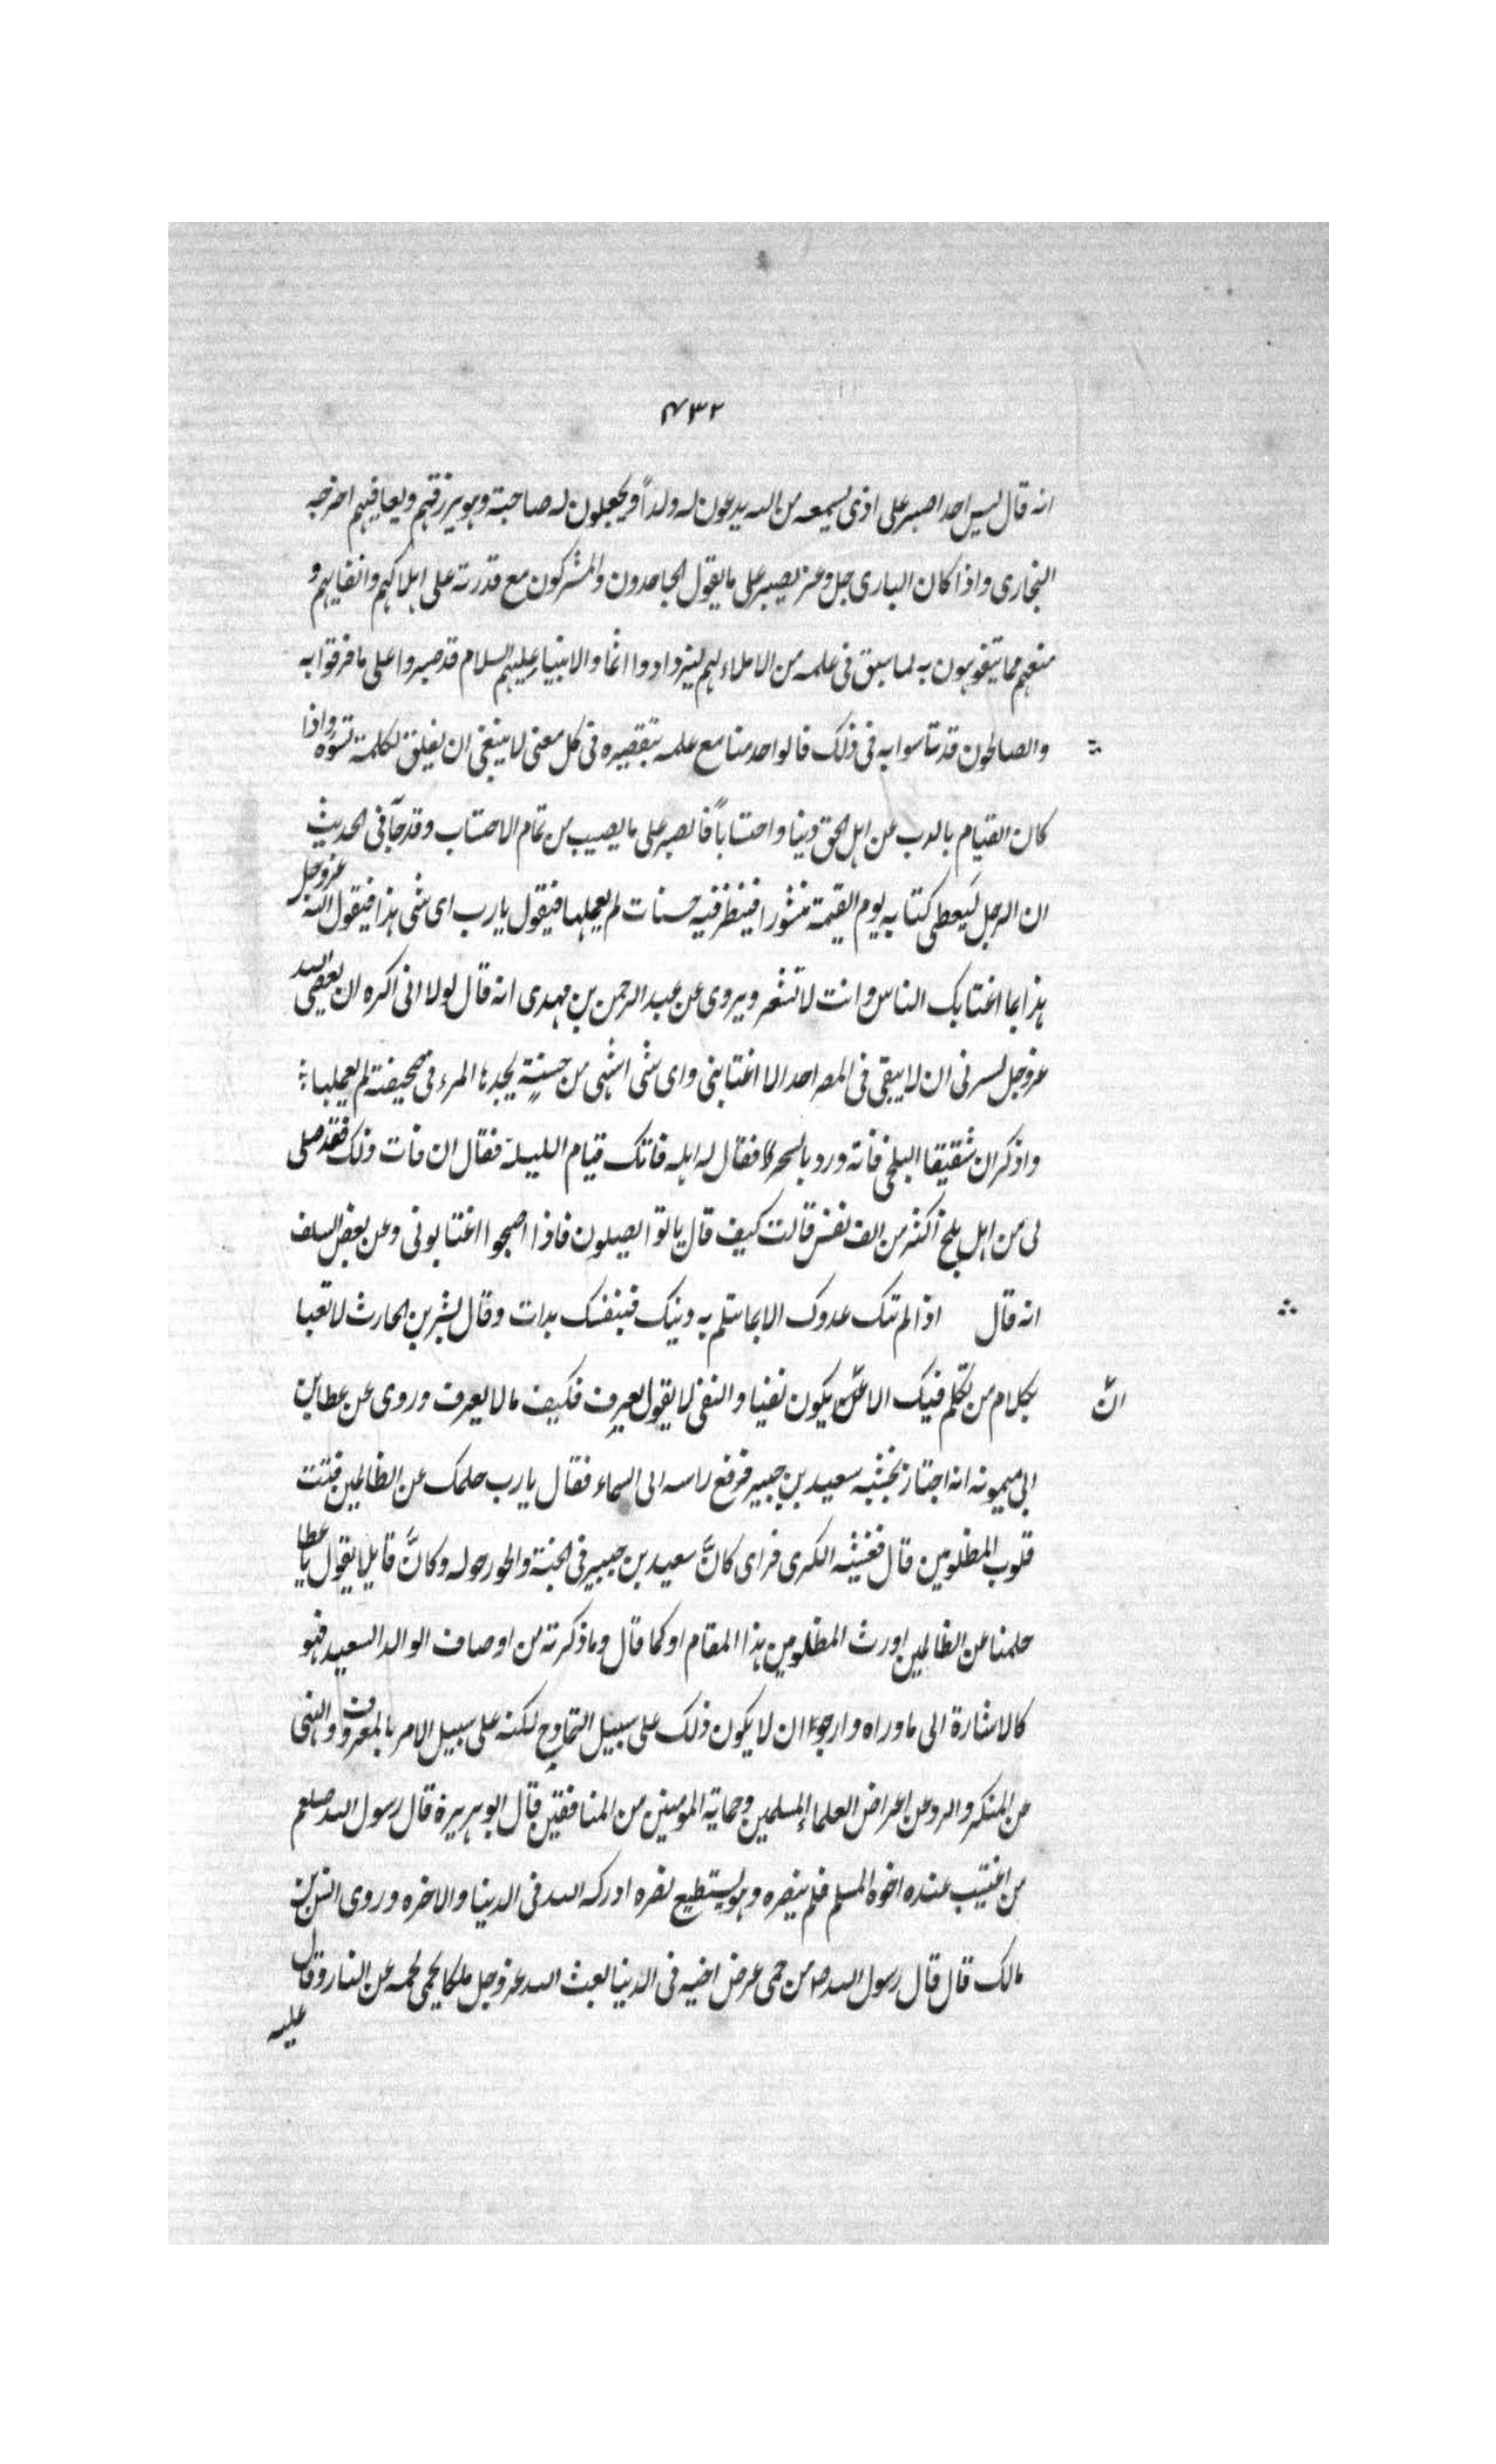 ۴۳۲
انه قال ليس احد اصبر على اذى يسمعه من الله يدعون له ولداً ويجعلون له صاحبة وهو يرزقهم ويعافيهم اخرجه
البخارى واذا كان البارى جل وعز يصبر على ما يقول الجاحدون والمشركون مع قدرته على اهلاكهم وانفايهم و
منعهم مما يتفوهون به لما سبق فى علمه من الاملاء لهم ليزدادوا اثما والانبياء عليهم السلام قد صبروا على ما فرقوا به
والصالحون قد تاسوا به فى ذلك فالواحد منا مع علمه بتقصيره فى كل معنى لا ينبغى ان يقلق لكلمة تسؤه واذا
كان القيام بالذب عن اهل الحق دينا واحتساباً فالصبر على ما يصيب من تمام الاحتساب وقد جآ فى الحديث
ان الرجل ليَعطى كتابه يوم القيمة منشورا فينظر فيه حسنات لم يعملها فيقول يا رب اى شى هذا فيقول الله عز وجل
هذا بما اغتابك الناس وانت لا تشعر ويروى عن عبد الرحمن بن مهدى انه قال لولا انى اكره ان يعصى الله
عز وجل لسرنى ان لا يبقى فى المصر احد الا اغتابنى واى شى اشهى من حسنةٍ يجدها المرء فى صحيفته لم يعملها
واذكر ان شقيقا البلخى فاته ورد بالسحر فقال له اهله فاتك قيام الليلة فقال ان فات ذلك فقد صلى
لى من اهل بلخ اكثر من الف نفس قالت كيف قال باتوا يصلون فاذا اصبحوا اغتابونى وعن بعض السلف
انه قال اذا لم تنك عدوك الا بما يثلم به دينك فبنفسك بدات وقال بشر بن الحارث لا تعبا
بكلام من تكلم فيك الا ان يكون تقيا والتقى لا يقول يعرف فكيف ما لا يعرف وروى عن عطا بن
انّ
ابى ميمونه انه اجتاز بخشبه سعيد بن جبير فرفع راسه الى السماء فقال يا رب حلمك عن الظالمين فتت
قلوب المظلومين قال فغشيه الكرى فراى كانَّ سعيد بن جبير فى الجنة والحور حوله وكانَّ قايلا يقول يا عطا
حلمنا عن الظالمين اورث المظلومين هذا المقام او كما قال وما ذكرته من اوصاف الوالد السعيد فهو
كالاشارة الى ما وراه وارجوا ان لا يكون ذلك على سبيل التمادح لكنه على سبيل الامر بالمعروف والنهى
عن المنكر والرد عن اعراض العلماء المسلمين وحماية المومنين من المنافقين قال ابو هريرة قال رسول الله صلعم
من اغتيب عنده اخوه المسلم فلم ينصره وهو يستطيع نصره ادركه الله فى الدنيا والاخره وروى انس بن
مالك قال قال رسول الله صلعم من حمى عرض اخيه فى الدنيا بعث الله عز وجل ملكا يحمى لحمه عن النار وقال
عليه